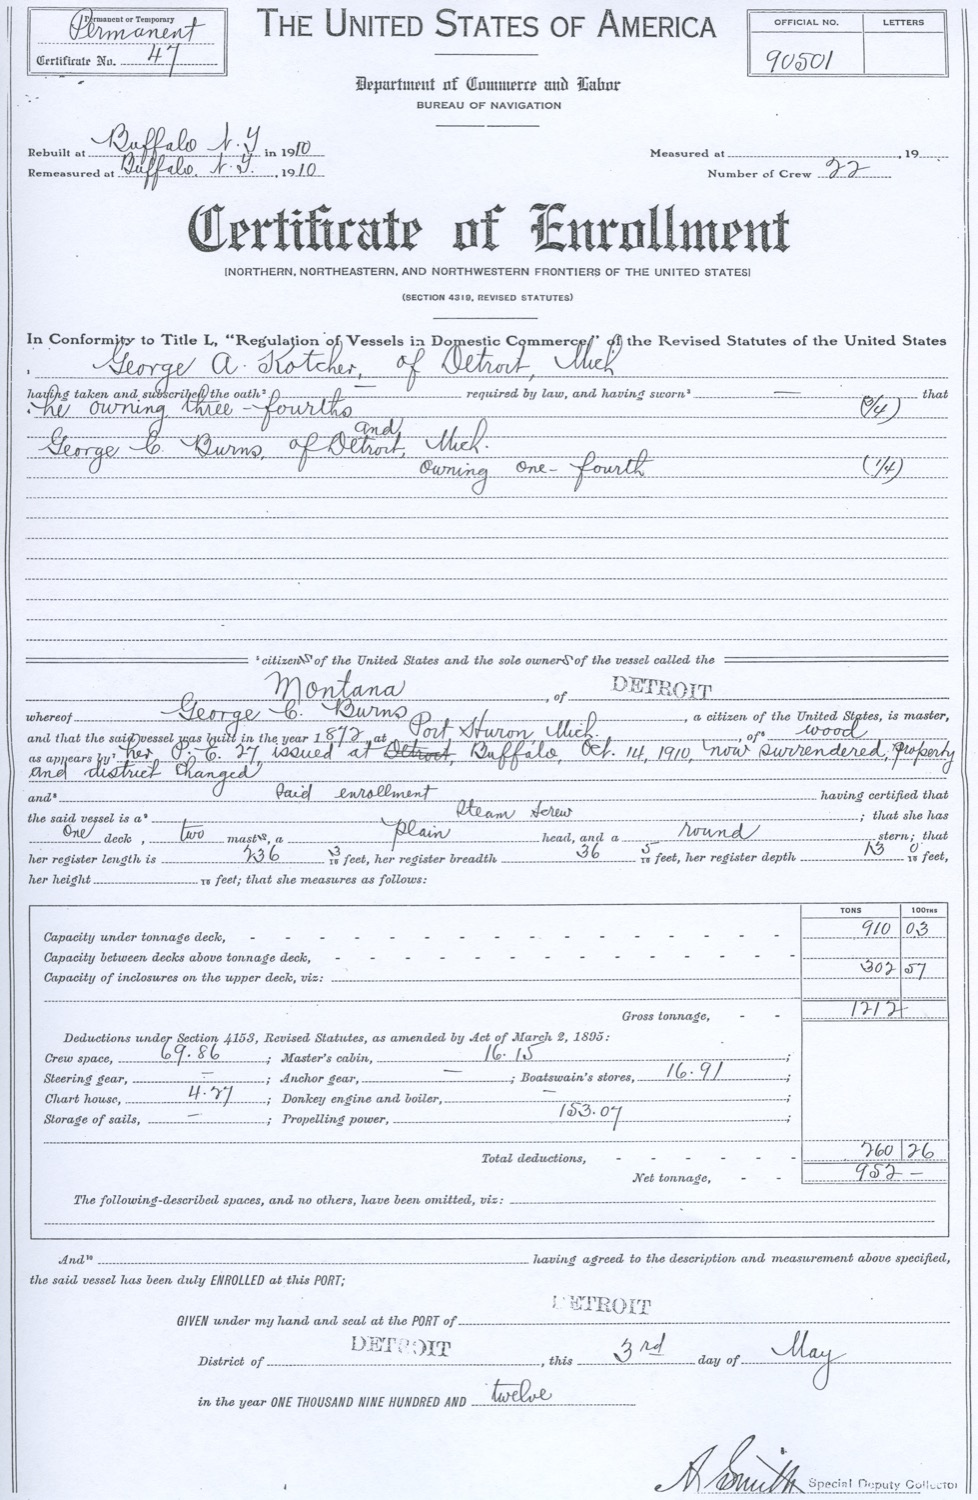 Permanent or Temporary
Permanent
Certificate No. 47
THE UNITED STATES OF AMERICA
OFFICIAL NO. LETTERS
90501
Department of Commerce and Labor
BUREAU OF NAVIGATION
Rebuilt at Buffalo N.Y. in 1910
Measured at , 19
Remeasured at Buffalo, N.Y. , 1910
Number of Crew 22
Certificate of Enrollment
[NORTHERN, NORTHEASTERN, AND NORTHWESTERN FRONTIERS OF THE UNITED STATES]
(SECTION 4319, REVISED STATUTES)
In Conformity to Title L, "Regulation of Vessels in Domestic Commerce," of the Revised Statutes of the United States
, George A. Kotcher, of Detroit, Mich
having taken and subscribed the oath² — required by law, and having sworn³ — that
he owning three-fourths (3/4)
and
George C. Burns, of Detroit, Mich.
owning one-fourth (1/4)
citizens of the United States and the sole owners of the vessel called the
Montana , of DETROIT
whereof George C. Burns , a citizen of the United States, is master,
and that the said vessel was built in the year 1872, at Port Huron Mich. , of wood
as appears by her P. E. 27, issued at Detroit, Buffalo, Oct. 14, 1910, now surrendered, property
and district changed
and said enrollment having certified that
the said vessel is a Steam Screw ; that she has
One deck , two masts, a plain head, and a round stern; that
her register length is 236 3/10 feet, her register breadth 36 5/10 feet, her register depth 13 0/10 feet,
her height /10 feet; that she measures as follows:
TONS 100THS
Capacity under tonnage deck, - - - 910 03
Capacity between decks above tonnage deck, - - -
Capacity of inclosures on the upper deck, viz: 302 57
Gross tonnage, - - 1212
Deductions under Section 4153, Revised Statutes, as amended by Act of March 2, 1895:
Crew space, 69.86 ; Master's cabin, 16.15 ;
Steering gear, — ; Anchor gear, — ; Boatswain's stores, 16.91 ;
Chart house, 4.27 ; Donkey engine and boiler, — ;
Storage of sails, — ; Propelling power, 153.07 ;
Total deductions, - - - 260 26
Net tonnage, - - 952 —
The following-described spaces, and no others, have been omitted, viz:
And¹⁰ having agreed to the description and measurement above specified,
the said vessel has been duly ENROLLED at this PORT;
GIVEN under my hand and seal at the PORT of DETROIT
District of DETROIT , this 3rd day of May
in the year ONE THOUSAND NINE HUNDRED AND twelve
A Smith Special Deputy Collector